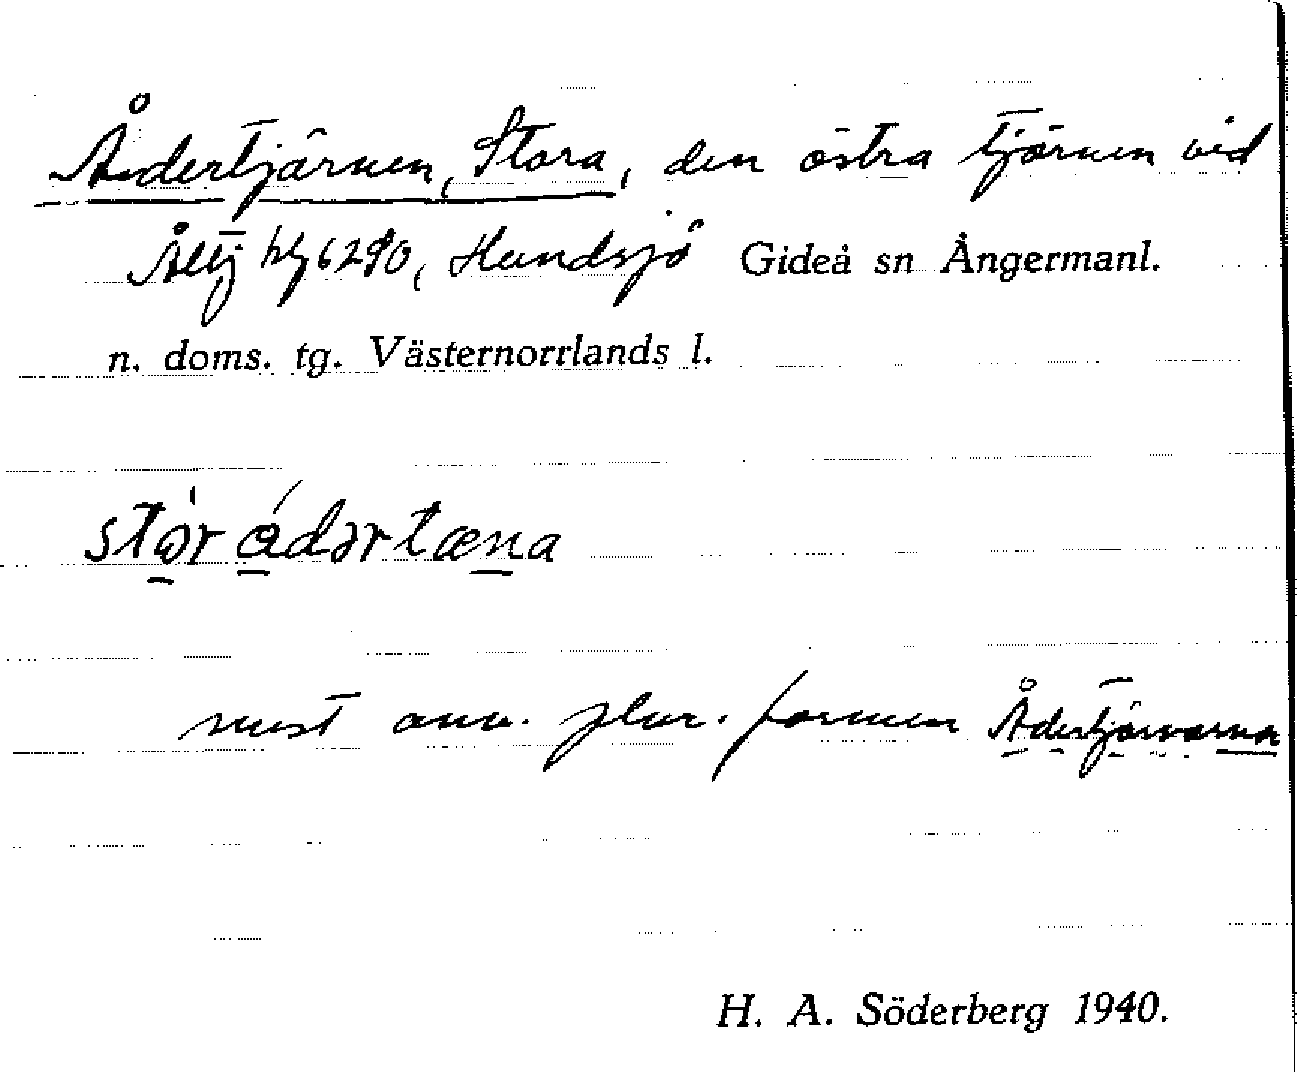 Ådertjärnen, Stora, den östra tjärnen vid
Åttj hö 6290, Hundsjö Gideå sn Ångermanl.
n. doms. tg. Västernorrlands l.
stor ådərtæna
mest anv. plur. formen Ådertjärnarna
H. A. Söderberg 1940.